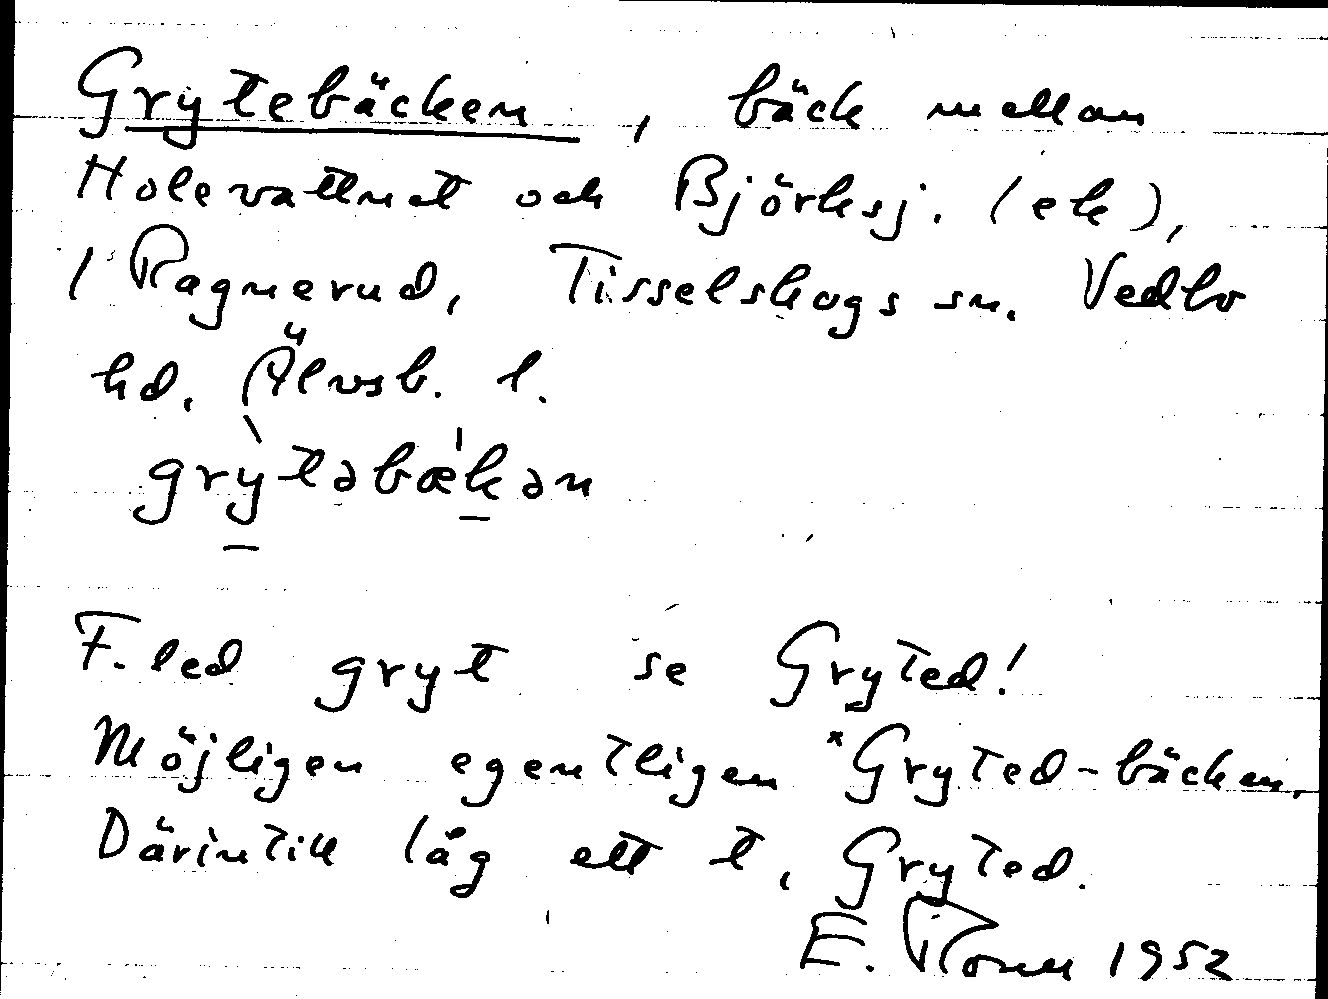 Grytebäcken, bäck mellan
Holevattnet och Björksj. (ek),
i Ragnerud, Tisselskogs sn. Vedbo
hd. Älvsb. l.
grỳtəbækən
F. led gryt se Gryted!
Möjligen egentligen *Gryted-bäcken.
Därintill låg ett t, Gryted.
E. 1952